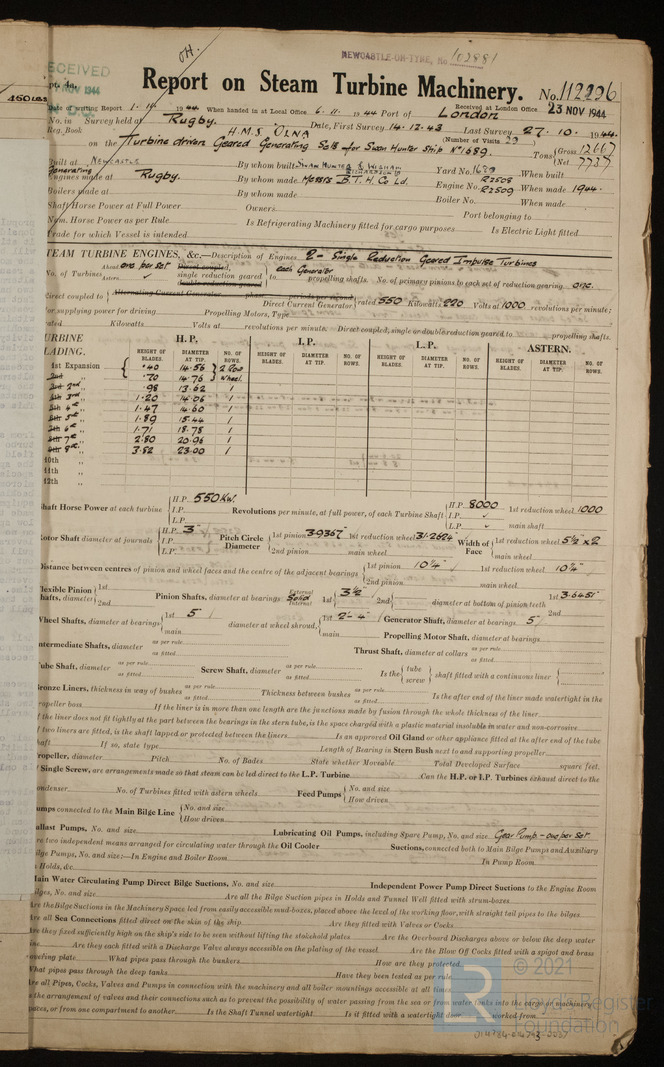 OH.
NEWCASTLE-ON-TYNE, No. 102881
RECEIVED
NOV 1944
Report on Steam Turbine Machinery. No. 112296
460 LBS
pt. 4a.
Date of writing Report 1. 11. 1944 When handed in at Local Office 6. 11. 1944 Port of London Received at London Office 23 NOV 1944
No. in Survey held at Rugby. Date, First Survey 14. 12. 43 Last Survey 27. 10. 1944
Reg. Book H.M.S OLNA (Number of Visits 29 )
on the Turbine driven Geared Generating Sets for Swan Hunter Ship No 1689. Tons {Gross 12667
{Net 7737
Built at Newcastle By whom built Swan Hunter & Wigham Richardson Yard No. 1689 When built
Generating
Engines made at Rugby. By whom made Messrs B.T.H. Co Ld. Engine No. R2508 R2509 When made 1944.
Boilers made at By whom made Boiler No. When made
Shaft Horse Power at Full Power Owners Port belonging to
Nom. Horse Power as per Rule Is Refrigerating Machinery fitted for cargo purposes Is Electric Light fitted
Trade for which Vessel is intended
STEAM TURBINE ENGINES, &c.—Description of Engines 2 - Single Reduction Geared Impulse Turbines
No. of Turbines Ahead one per set Direct coupled, single reduction geared double reduction geared } to each Generator propelling shafts. No. of primary pinions to each set of reduction gearing one.
Astern ✓
direct coupled to { Alternating Current Generator phase periods per second
Direct Current Generator } rated 550 Kilowatts 220 Volts at 1000 revolutions per minute;
for supplying power for driving Propelling Motors, Type
rated Kilowatts Volts at revolutions per minute. Direct coupled, single or double reduction geared to propelling shafts.
TURBINE BLADING. H. P. I. P. L. P. ASTERN.
HEIGHT OF BLADES. DIAMETER AT TIP. NO. OF ROWS. HEIGHT OF BLADES. DIAMETER AT TIP. NO. OF ROWS. HEIGHT OF BLADES. DIAMETER AT TIP. NO. OF ROWS. HEIGHT OF BLADES. DIAMETER AT TIP. NO. OF ROWS.
1st Expansion { .40 14.56 } 2 Row
2nd „ { .70 14.76 } Wheel.
3rd 2nd „ .98 13.62 1
4th 3rd „ 1.20 14.06 1
5th 4th „ 1.47 14.60 1
6th 5th „ 1.89 15.44 1
7th 6th „ 1.71 18.78 1
8th 7th „ 2.80 20.96 1
9th 8th „ 3.82 23.00 1
10th „
11th „
12th „
Shaft Horse Power at each turbine { H.P. 550 KW. I.P. L.P. Revolutions per minute, at full power, of each Turbine Shaft { H.P. 8000 I.P. ✓ L.P. ✓ 1st reduction wheel 1000 main shaft
Rotor Shaft diameter at journals { H.P. 3" I.P. L.P. Pitch Circle Diameter { 1st pinion 3.9367" 1st reduction wheel 31.2624" 2nd pinion main wheel Width of Face { 1st reduction wheel 5½" x 2 main wheel
Distance between centres of pinion and wheel faces and the centre of the adjacent bearings { 1st pinion 10¼" 1st reduction wheel 10¼"
2nd pinion main wheel
Flexible Pinion Shafts, diameter { 1st 2nd Pinion Shafts, diameter at bearings External Solid Internal 1st 3½" 2nd diameter at bottom of pinion teeth { 1st 3.6451" 2nd
Wheel Shafts, diameter at bearings { 1st 5" main diameter at wheel shroud, { 1st 2'-4" main Generator Shaft, diameter at bearings 5"
Propelling Motor Shaft, diameter at bearings
Intermediate Shafts, diameter as per rule as fitted Thrust Shaft, diameter at collars as per rule as fitted
Tube Shaft, diameter as per rule as fitted Screw Shaft, diameter as per rule as fitted Is the { tube screw } shaft fitted with a continuous liner {
Bronze Liners, thickness in way of bushes as per rule as fitted Thickness between bushes as per rule as fitted Is the after end of the liner made watertight in the
propeller boss If the liner is in more than one length are the junctions made by fusion through the whole thickness of the liner
If the liner does not fit tightly at the part between the bearings in the stern tube, is the space charged with a plastic material insoluble in water and non-corrosive
If two liners are fitted, is the shaft lapped or protected between the liners Is an approved Oil Gland or other appliance fitted at the after end of the tube
shaft If so, state type Length of Bearing in Stern Bush next to and supporting propeller
Propeller, diameter Pitch No. of Blades State whether Moveable Total Developed Surface square feet.
If Single Screw, are arrangements made so that steam can be led direct to the L.P. Turbine Can the H.P. or I.P. Turbines exhaust direct to the
Condenser No. of Turbines fitted with astern wheels Feed Pumps { No. and size How driven
Pumps connected to the Main Bilge Line { No. and size How driven
Ballast Pumps, No. and size Lubricating Oil Pumps, including Spare Pump, No. and size Gear Pump - one per set
Are two independent means arranged for circulating water through the Oil Cooler Suctions, connected both to Main Bilge Pumps and Auxiliary
Bilge Pumps, No. and size:—In Engine and Boiler Room In Pump Room
In Holds, &c.
Main Water Circulating Pump Direct Bilge Suctions, No. and size Independent Power Pump Direct Suctions to the Engine Room
Bilges, No. and size Are all the Bilge Suction pipes in Holds and Tunnel Well fitted with strum-boxes
Are the Bilge Suctions in the Machinery Space led from easily accessible mud-boxes, placed above the level of the working floor, with straight tail pipes to the bilges
Are all Sea Connections fitted direct on the skin of the ship Are they fitted with Valves or Cocks
Are they fixed sufficiently high on the ship's side to be seen without lifting the stokehold plates Are the Overboard Discharges above or below the deep water
line Are they each fitted with a Discharge Valve always accessible on the plating of the vessel Are the Blow Off Cocks fitted with a spigot and brass
covering plate What pipes pass through the bunkers How are they protected
What pipes pass through the deep tanks Have they been tested as per rule
Are all Pipes, Cocks, Valves and Pumps in connection with the machinery and all boiler mountings accessible at all times
Is the arrangement of valves and their connections such as to prevent the possibility of water passing from the sea or from water tanks into the cargo or machinery
spaces, or from one compartment to another Is the Shaft Tunnel watertight Is it fitted with a watertight door worked from
© 2021
Lloyd's Register
Foundation